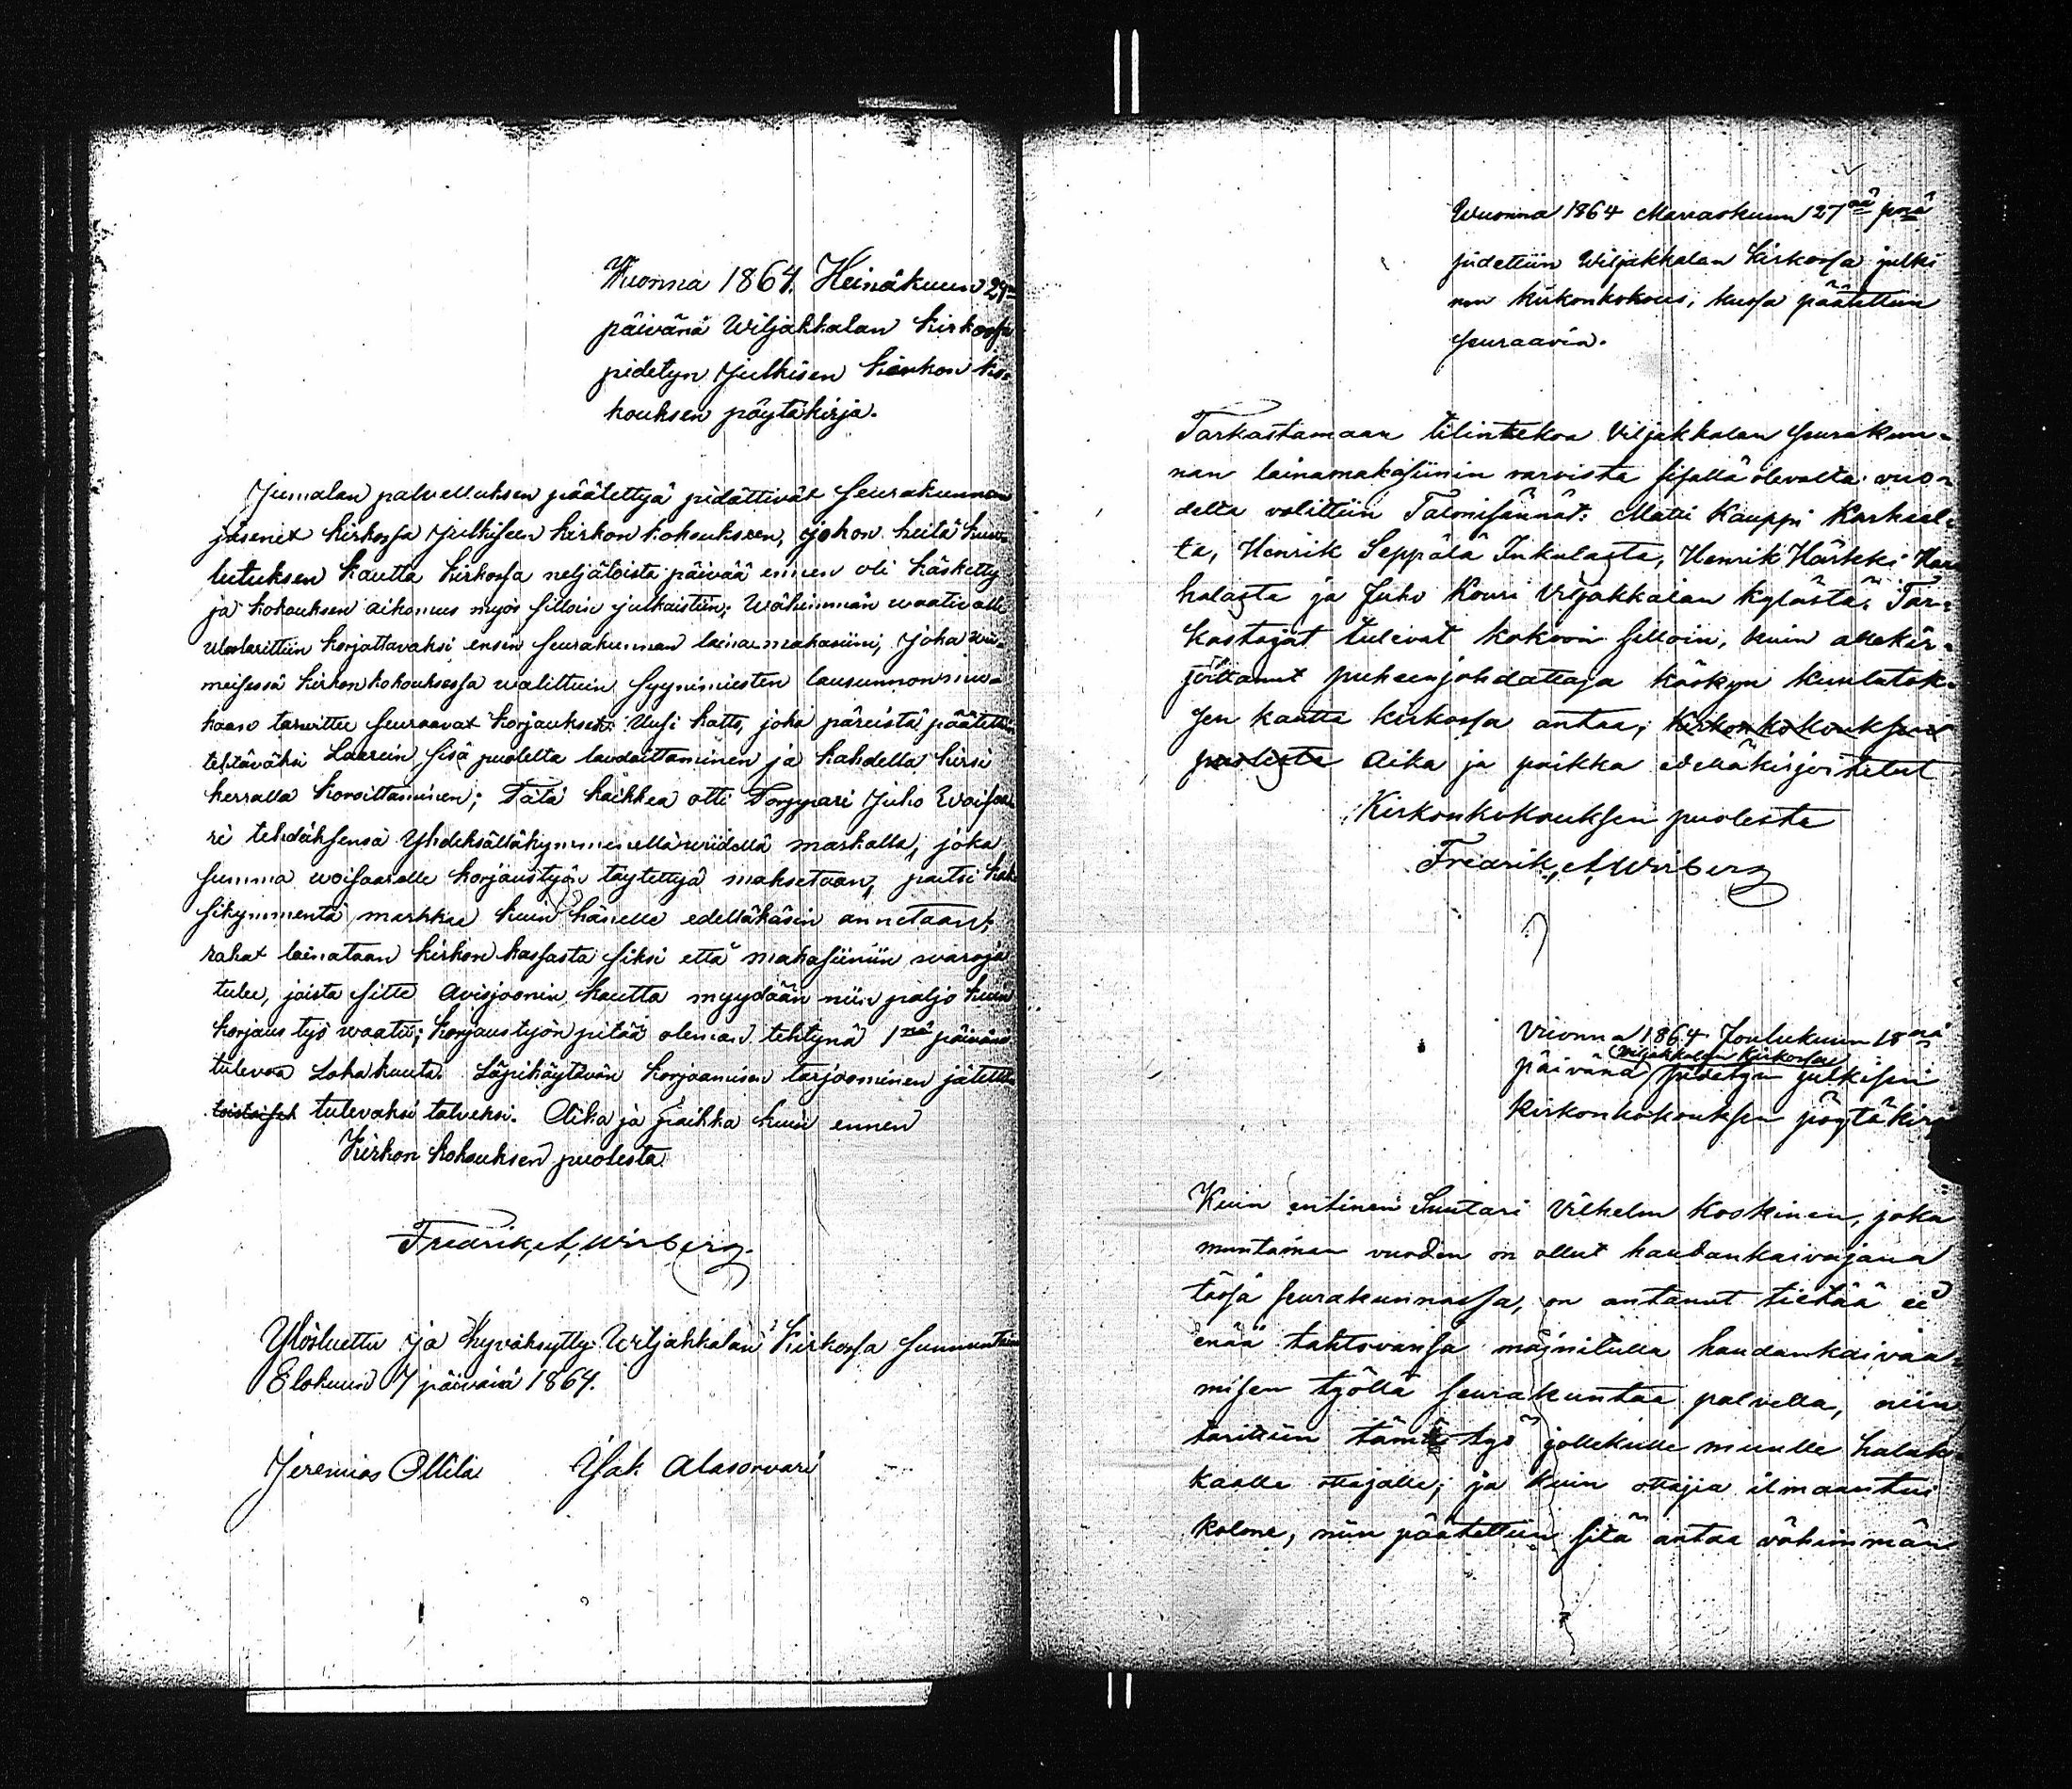 Wuonna 1864. Heinäkuun 24nä
päivänä Wiljakkalan kirkossa
pidetyn Julkisen kirkon ko-
kouksen pöytäkirja.
Jumalan palvelluksen päätettyä pidättivät seurakunnan
jäsenet kirkossa Julkiseen kirkon kokoukseen, johon heitä kuu-
lutuksen kautta kirkossa neljätoista päivää ennen oli käsketty
ja kokouksen aikomus myös silloin julkaistiin; Wähimmän waativalle
ulostarittiin korjattavaksi ensin seurakunnan lainamakasiini, Joka wii-
meisessä kirkonkokouksessa walittuin syynimiesten lausunnon mu-
kaan tarwittee seuraavat korjaukset: Uusi katto, joka päreistä päätettiin
tehtäväksi Laarein sisä puolelta laudoittaminen ja kahdella hirsi
kerralla koroittaminen; Tätä kaikkea otti Torppari Juho Woisaa-
ri tehdäksensä Yhdeksälläkymmenellä wiidellä markalla, joka
summa woisaarelle korjaustyön täytettyä maksetaan, paitsi kak-
sikymmentä markkaa kuin hänelle edelläkäsin annetaan;
rahat lainataan kirkon kassasta siksi että makasiiniin waroja
tulee, joista sitte Avisjoonin kautta myydään niin paljo kuin
korjaus työ waatii; korjaustyön pitää oleman tehtynä 1nä päivänä
tulevaa Lokakuuta. Läpikäytävän korjaamisen tarjoominen jätettiin
toistaiseksi tulevaksi talveksi. Aika ja paikka kuin ennen
Kirkon kokouksen puolesta
Fredrik A. Wirberg
Ylösluettu ja hyväksytty Wiljakkalan kirkossa sunnuntaina
Elokuun 7 päivänä 1864.
Jeremias Ollila Isak Alasorvari
Wuonna 1864 Marraskuun 27nä pnä
pidettiin Wiljakkalan kirkossa julki
nen kirkonkokous, kussa päätettiin
seuraavia.
Tarkastamaan tilintekoa Viljakkalan seurakun-
nan lainamakasiinin varoista sisällä olevalta vuo-
delta valittiin Talonisännät: Matti Kauppi Karheel-
ta, Henrik Seppälä Inkulasta, Henrik Härkki Har
halasta ja Juho Kouri Viljakkalan kylästä. Tar-
kastajat tulevat kokoon silloin, kuin allekir-
joittanut puheenjohdattaja käskyn kuulutuk-
sen kautta kirkossa antaa; kirkonkokouksen
puolesta Aika ja paikka edelläkirjoitetut
Kirkonkokouksen puolesta
Fredrik A. Wirberg
Vuonna 1864 Joulukuun 18nä
Wiljakkalan kirkossa
päivänä pidetyn julkisen
kirkonkokouksen pöytäkirj
Kuin entinen Suutari Vilhelm Koskinen, joka
muutaman vuoden on ollut haudankaivajana
tässä seurakunnassa, on antanut tietää ei
enää tahtovansa mainitulla haudankaivaa-
misen työllä seurakuntaa palvella, niin
tarittiin tämä työ jollekulle muulle haluk-
kaalle ottajalle; ja kuin ottajia ilmaantui
kolme, niin päätettiin sitä antaa vähimmän